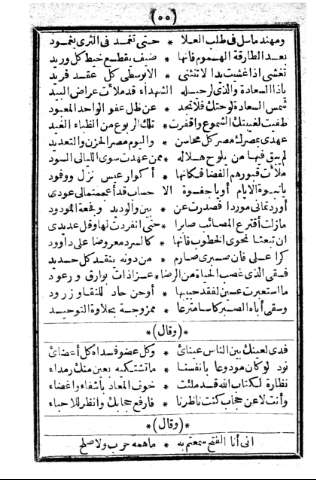 (٥٥)
ومهند ماسل فى طلب العلا * حتى تغمد فى الثرى بغمود
بعد الطارقة الهموم فانها * ضيف بقطع خيط كل وريد
تغشى اذا غشيت بدا لا تنثنى * الا وسطى كل عقد فريد
ياذا السعادة والذى لرحيله * الشهداء قد ملأت عراض البيد
شمس السعادة لوحتك فلا تجد * عن ظل عفو الواحد المعبود
طفيت لغيبتك الشموع واقفرت * تلك الربوع من الظباء الغيد
عهدى بعصرك مصر كل محاسن * واليوم مصر الحزن والتعديد
لم يبق فيها من يلوح هلاله * من عهدت سوى الليالى السود
ملأت قبورهم الفضا فكانها * أكوار عيس نزل ووفود
يانبوة الايام أو يا جفوة الا * حساب قد أعجمتما لى عودى
أوردتمانى موردا فصدرت عن * بين والوديد وفجعة المودود
مازلت أقترع المصائب صابرا * حتى انفردت لها وقل عديدى
ان تبعثا نحوى الخطوب فانها * كالسرد معروضا على داوود
كرا على فان صبرى صارم * من دونه ينقد كل حديد
فسقى الذى غصب الحياة من الرضا * عزاذات بوارق ورعود
ما استعبرت عين لفقد حبيبها * أوحن حاد للنقا وزرود
وسقى أباه الصبر كاسا مترعا * ممزوجة بحلاوة التوحيد
*(وقال)*
فدى لعينك بين الناس عينائى * وكل عضو فداه كل أعضائى
نود لو كان مودوعا بانفسنا * ما تشتكيه بعين منك رمداء
نظارة لكتاب الله قد ملئت * خوف المعاد باشفاء واغضاء
وأنت لا عن حجاب كنت ناظرنا * فارفع حجابك وانظر للاحباء
*(وقال)*
انى أنا الفتح سمعتم به * ماهمه حرب ولا صلح